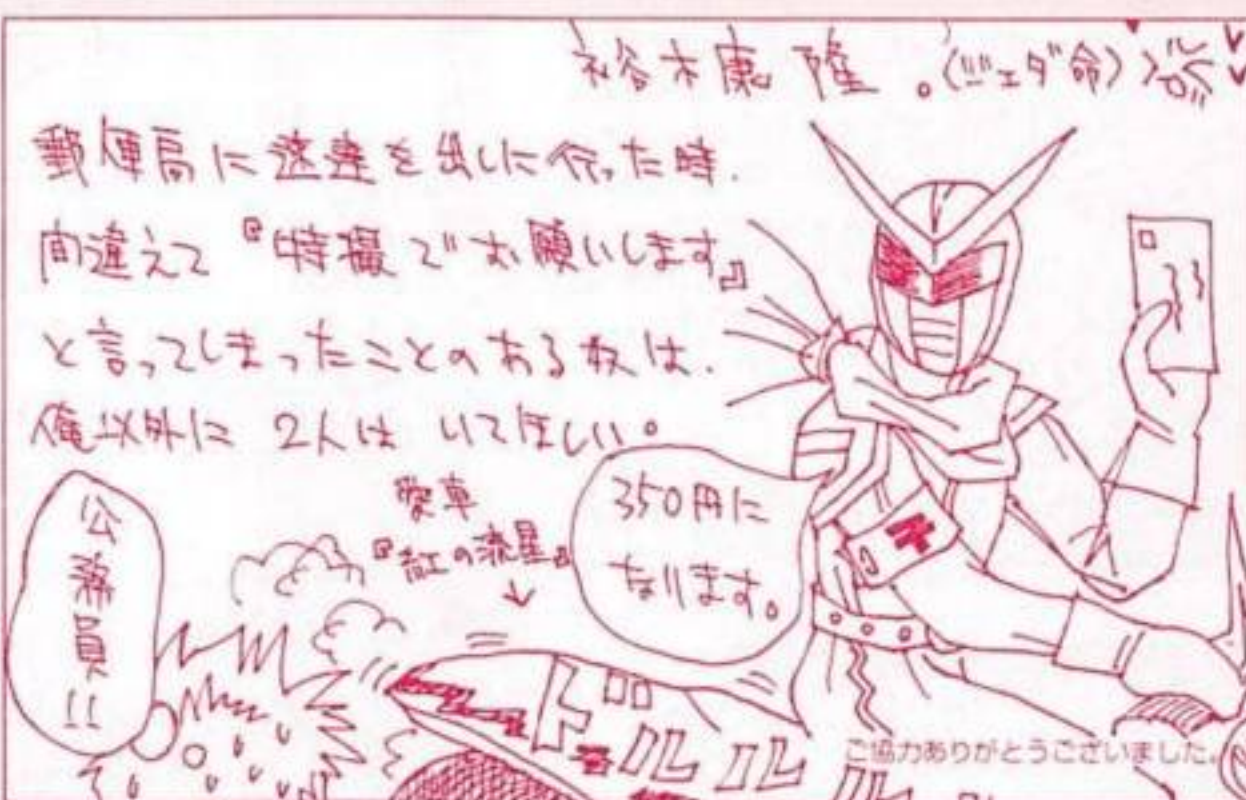 裕木康隆。(ジェダ命)
郵便局に速達を出しに行った時.
間違えて『特撮でお願いします』
と言ってしまったことのある奴は.
俺以外に2人はいてほしい。
愛車
『紅の流星』
350円に
なります。
公務員!!
〒
ドドルルル
ご協力ありがとうございました。